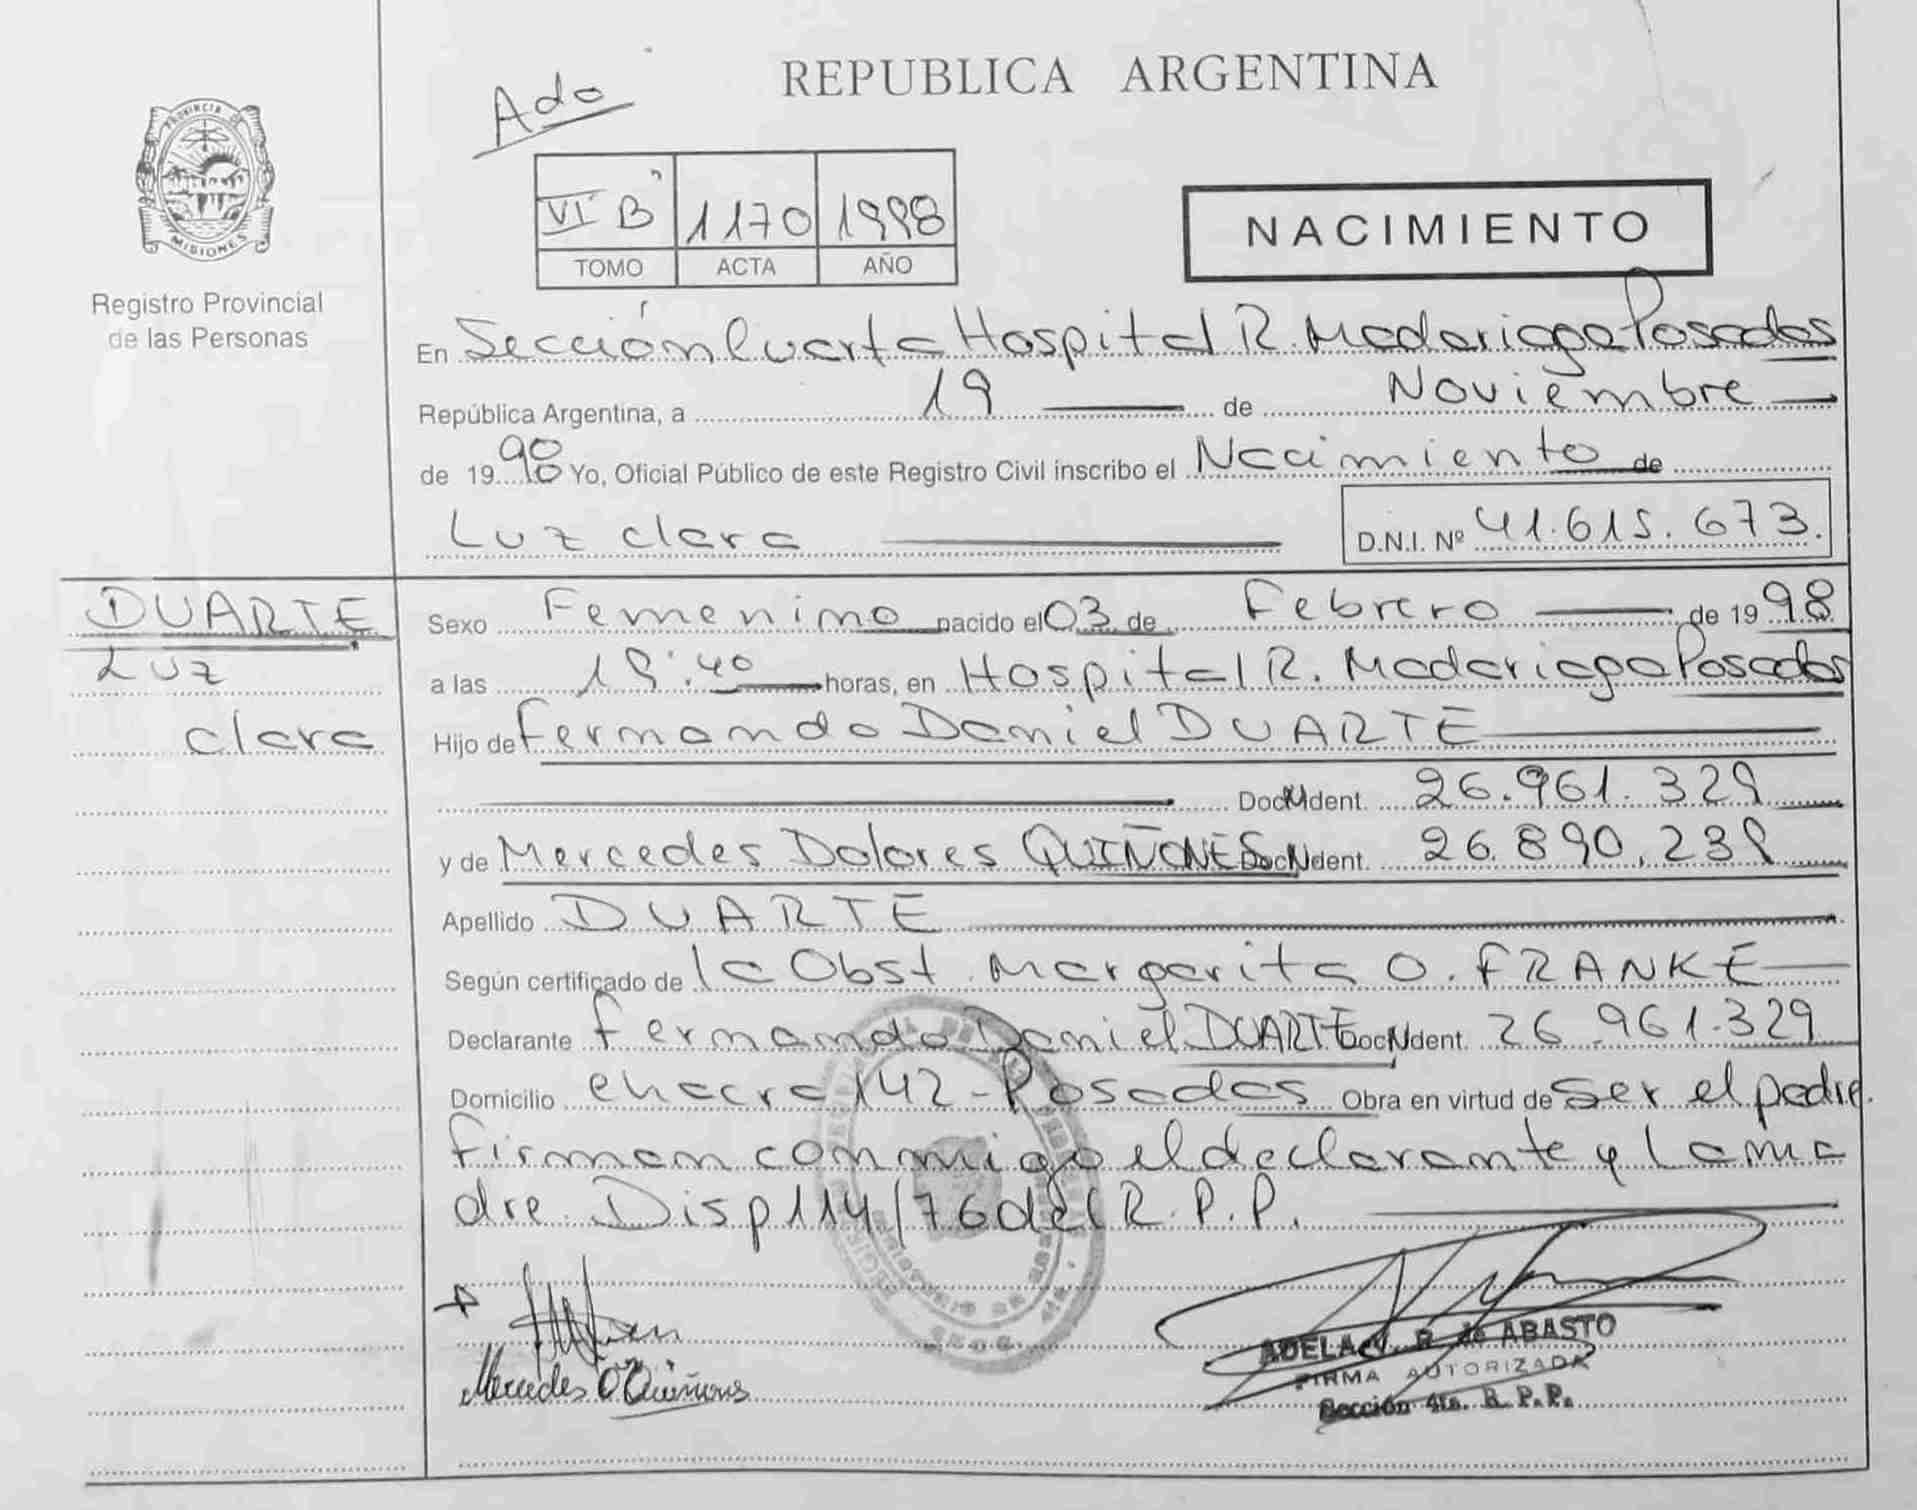 REPUBLICA ARGENTINA
Ado
PROVINCIA DE
MISIONES
VI B 1170 1998
TOMO ACTA AÑO
NACIMIENTO
Registro Provincial
de las Personas
En Sección Cuarta Hospital R. Madariaga Posadas
República Argentina, a 19 de Noviembre
de 19 98 Yo, Oficial Público de este Registro Civil inscribo el Nacimiento de
Luz clara D.N.I. Nº 41.615.673.
DUARTE
Luz
clara
Sexo Femenino nacido el 03 de Febrero de 19 98
a las 19:40 horas, en Hospital R. Madariaga Posadas
Hijo de Fernando Daniel DUARTE
Doc N Ident. 26.961.329
y de Mercedes Dolores QUIÑONES Doc N Ident. 26.890.239
Apellido DUARTE
Según certificado de la Obst. Margarita O. FRANKE
Declarante Fernando Daniel DUARTE Doc N Ident. 26.961.329
Domicilio chacra 142 - Posadas Obra en virtud de ser el padre.
firman conmigo el declarante y la ma
dre. Disp 114/76 del R.P.P.
Mercedes D Quiñones
ADELA V. R. de ABASTO
FIRMA AUTORIZADA
Sección 4ta. R. P. P.